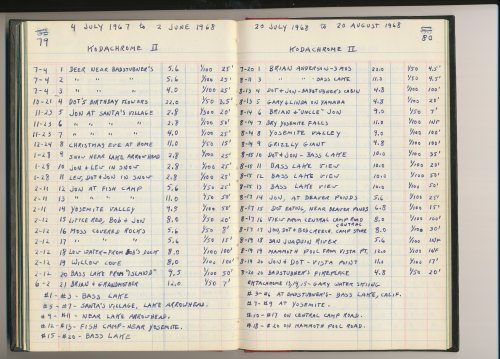 4 JULY 1967 to 2 JUNE 1968
79
KODACHROME II
7-4 1 DEER NEAR BADSTUBNER'S 5.6 1/100 25'
7-4 2 " " " 5.6 1/100 25'
7-4 3 " " " 4.0 1/100 25'
10-21 4 DOT'S BIRTHDAY FLOWERS 22.0 1/50 2.5'
11-23 5 JON AT SANTA'S VILLAGE 2.8 25'
11-23 6 " " " " 2.8 1/100 25'
11-23 7 " " " " 4.0 1/100 25'
12-24 8 CHRISTMAS EVE AT HOME 11.0 1/50 15'
1-28 9 SNOW NEAR LAKE ARROWHEAD 2.8 1/100 25'
1-28 10 JON & LEV IN SNOW 2.8 1/100 25'
1-28 11 LEV, DOT & JON IN SNOW 2.8 1/100 25'
2-11 12 JON AT FISH CAMP 5.6 1/50 25'
2-11 13 " " " " 11.0 1/50
2-11 14 YOSEMITE VALLEY 4.5 1/100 50'
2-12 15 LITTLE RED, BOB & JON 8.0 1/50 20'
2-12 16 MOSS COVERED ROCKS 5.6 1/50 25'
2-12 17 " " " 5.6 1/50 15'
2-12 18 LOW WATER - FROM BOB'S DOCK 8.0 1/100 100'
2-12 19 WILLOW COVE 8.0 1/100 100'
2-12 20 BASS LAKE FROM "ISLAND" 9.5 1/100 50'
6-2 21 BRIAN & GRANDMOTHER 12.0 1/50 7'
#1-#3 - BASS LAKE
#5-#7 - SANTA'S VILLAGE, LAKE ARROWHEAD.
#9-#11 - NEAR LAKE ARROWHEAD.
#12-#15 - FISH CAMP - NEAR YOSEMITE.
#15-#20 - BASS LAKE
20 JULY 1968 to 20 AUGUST 1968
80
KODACHROME II
7-20 1 BRIAN ANDERSON - 3 MOS 22.0 1/50 4.5'
8-11 3 " " - BASS LAKE 11.0 1/50 4.5'
8-13 4 DOT & JON - BADSTUBNER'S CABIN 4.8 1/100 100'
8-13 5 GARY & LINDA ON YAMAHA 4.8 1/100 20'
8-14 6 BRIAN & "UNCLE" JON 9.0 1/50 7'
8-14 7 DRY YOSEMITE FALLS 11.0 1/100 INF
8-14 8 YOSEMITE VALLEY 9.0 1/100 100'
8-14 9 GRIZZLY GIANT 4.8 1/100 100'
8-15 10 DOT & JON - BASS LAKE 10.0 1/100 35'
8-15 11 BASS LAKE VIEW 10.0 1/100 25'
8-15 12 BASS LAKE VIEW 10.0 1/100 50'
8-15 13 BASS LAKE VIEW 10.0 1/100 50'
8-17 14 JON, AT BEAVER PONDS 5.6 1/100 25'
8-17 15 DOT EATING, NEAR BEAVER PONDS 6.8 1/100 15'
8-17 16 VIEW FROM CENTRAL CAMP ROAD 8.0 1/100 100'
8-17 17 JON, DOT & BOB & RECE. CENTRAL CAMP STORE 8.0 1/100 30'
8-19 18 SAN JOAQUIN RIVER 5.6 1/100 INF
8-19 19 MAMMOTH POOL FROM VISTA PT. 12.0 1/100 INF
8-19 20 JON & DOT - VISTA POINT 11.0 1/100 17'
8-20 20 BADSTUBNER'S FIREPLACE 4.8 1/50 20'
EKTACHROME 13, 14, 15 - GARY WATER SKIING
#3-#6 AT BADSTUBNER'S - BASS LAKE, CALIF.
#7-#9 AT YOSEMITE.
#10-#17 ON CENTRAL CAMP ROAD.
#18-#20 ON MAMMOTH POOL ROAD.